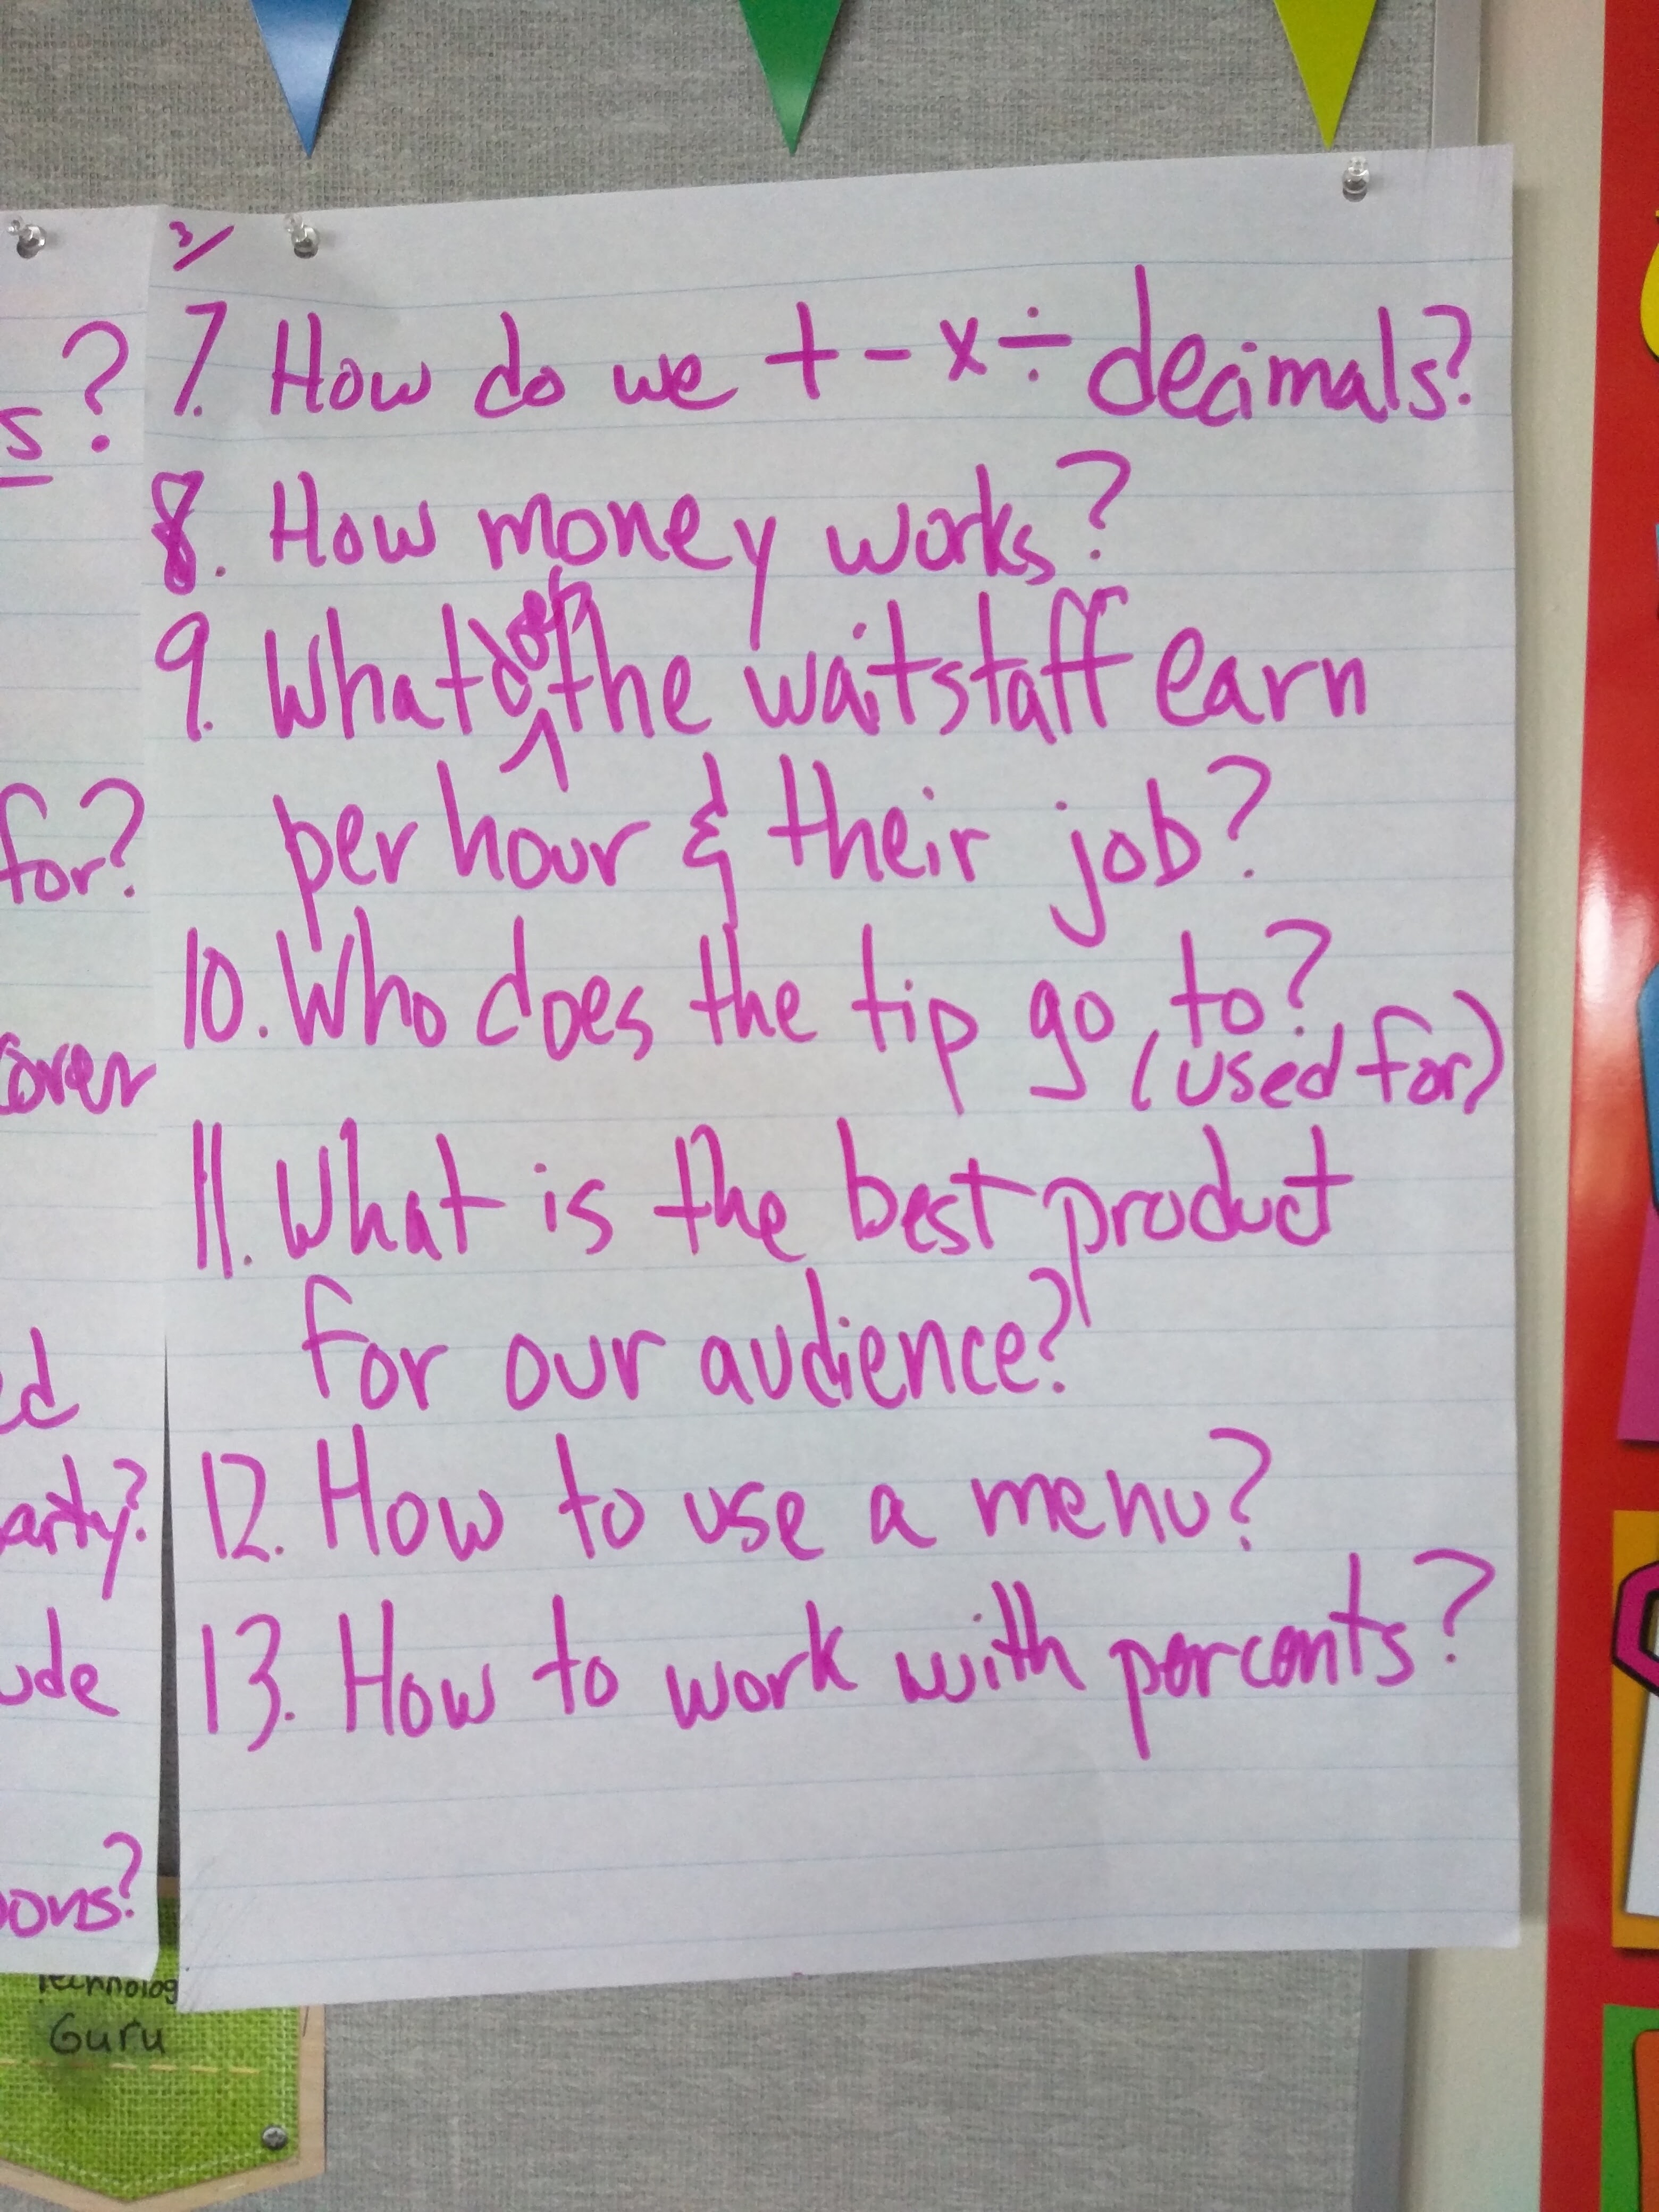 s?
for?
cover
ed
arity?
ude
ons?
3/
7. How do we + - x ÷ decimals?
8. How money works?
9. What does the waitstaff earn
per hour & their job?
10. Who does the tip go to?
(used for)
11. What is the best product
for our audience?
12. How to use a menu?
13. How to work with percents?
Technolog
Guru